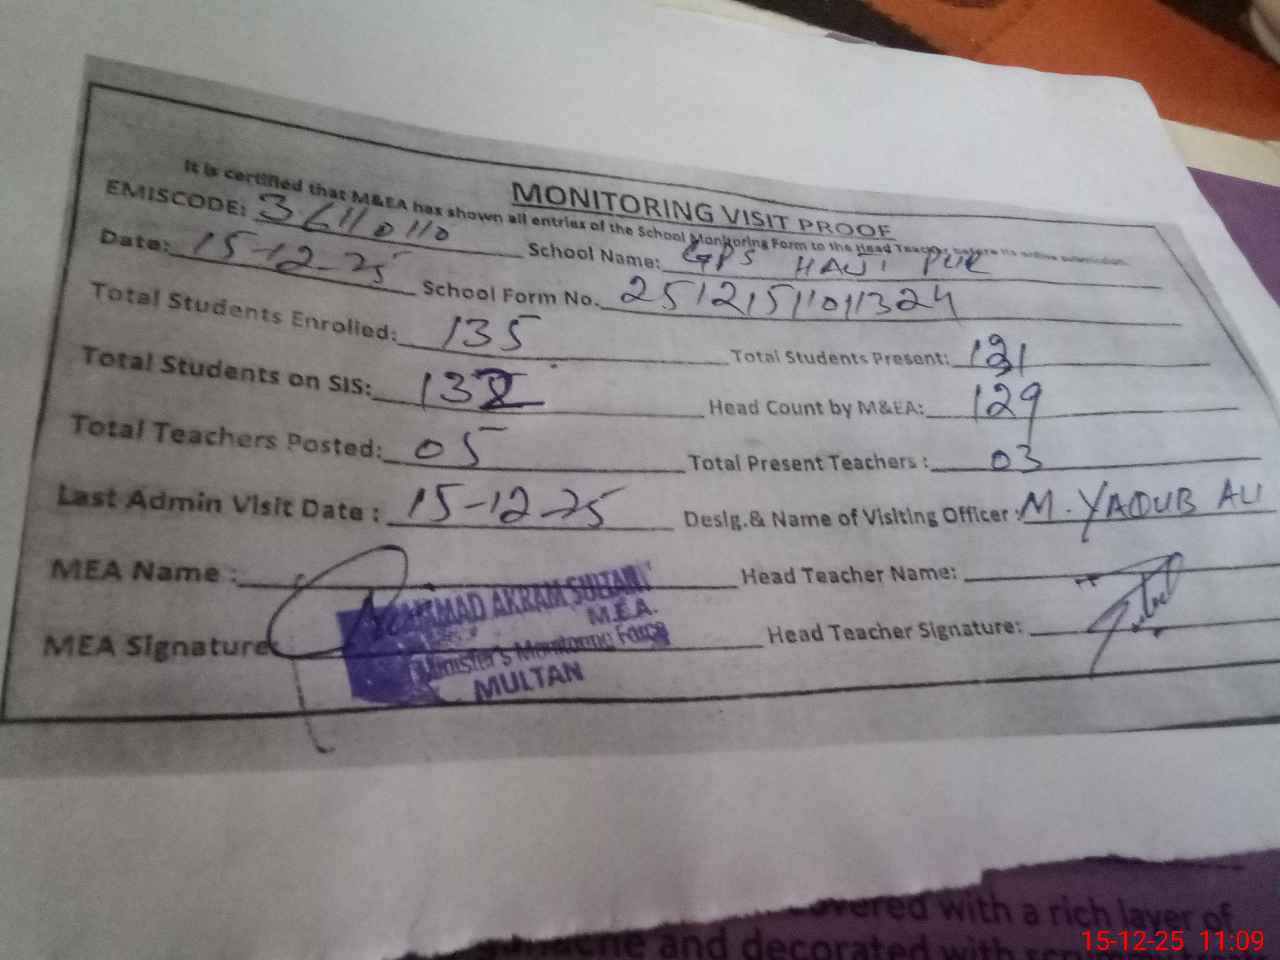 MONITORING VISIT PROOF
It is certified that M&EA has shown all entries of the School Monitoring Form to the Head Teacher before its online submission.
EMISCODE: 36110110 School Name: GPS HAJI PUR
Date: 15-12-25 School Form No. 2512151101324
Total Students Enrolled: 135 Total Students Present: 131
Total Students on SIS: Head Count by M&EA: 129
Total Teachers Posted: 05 Total Present Teachers : 03
Last Admin Visit Date : 15-12-25 Desig.& Name of Visiting Officer : M. YAQUB ALI
MEA Name : Head Teacher Name:
MEA Signature: Head Teacher Signature:
AHMAD AKRAM SULTAN
M.E.A.
Minister's Monitoring Force
MULTAN
covered with a rich layer of
and decorated with
15-12-25 11:09